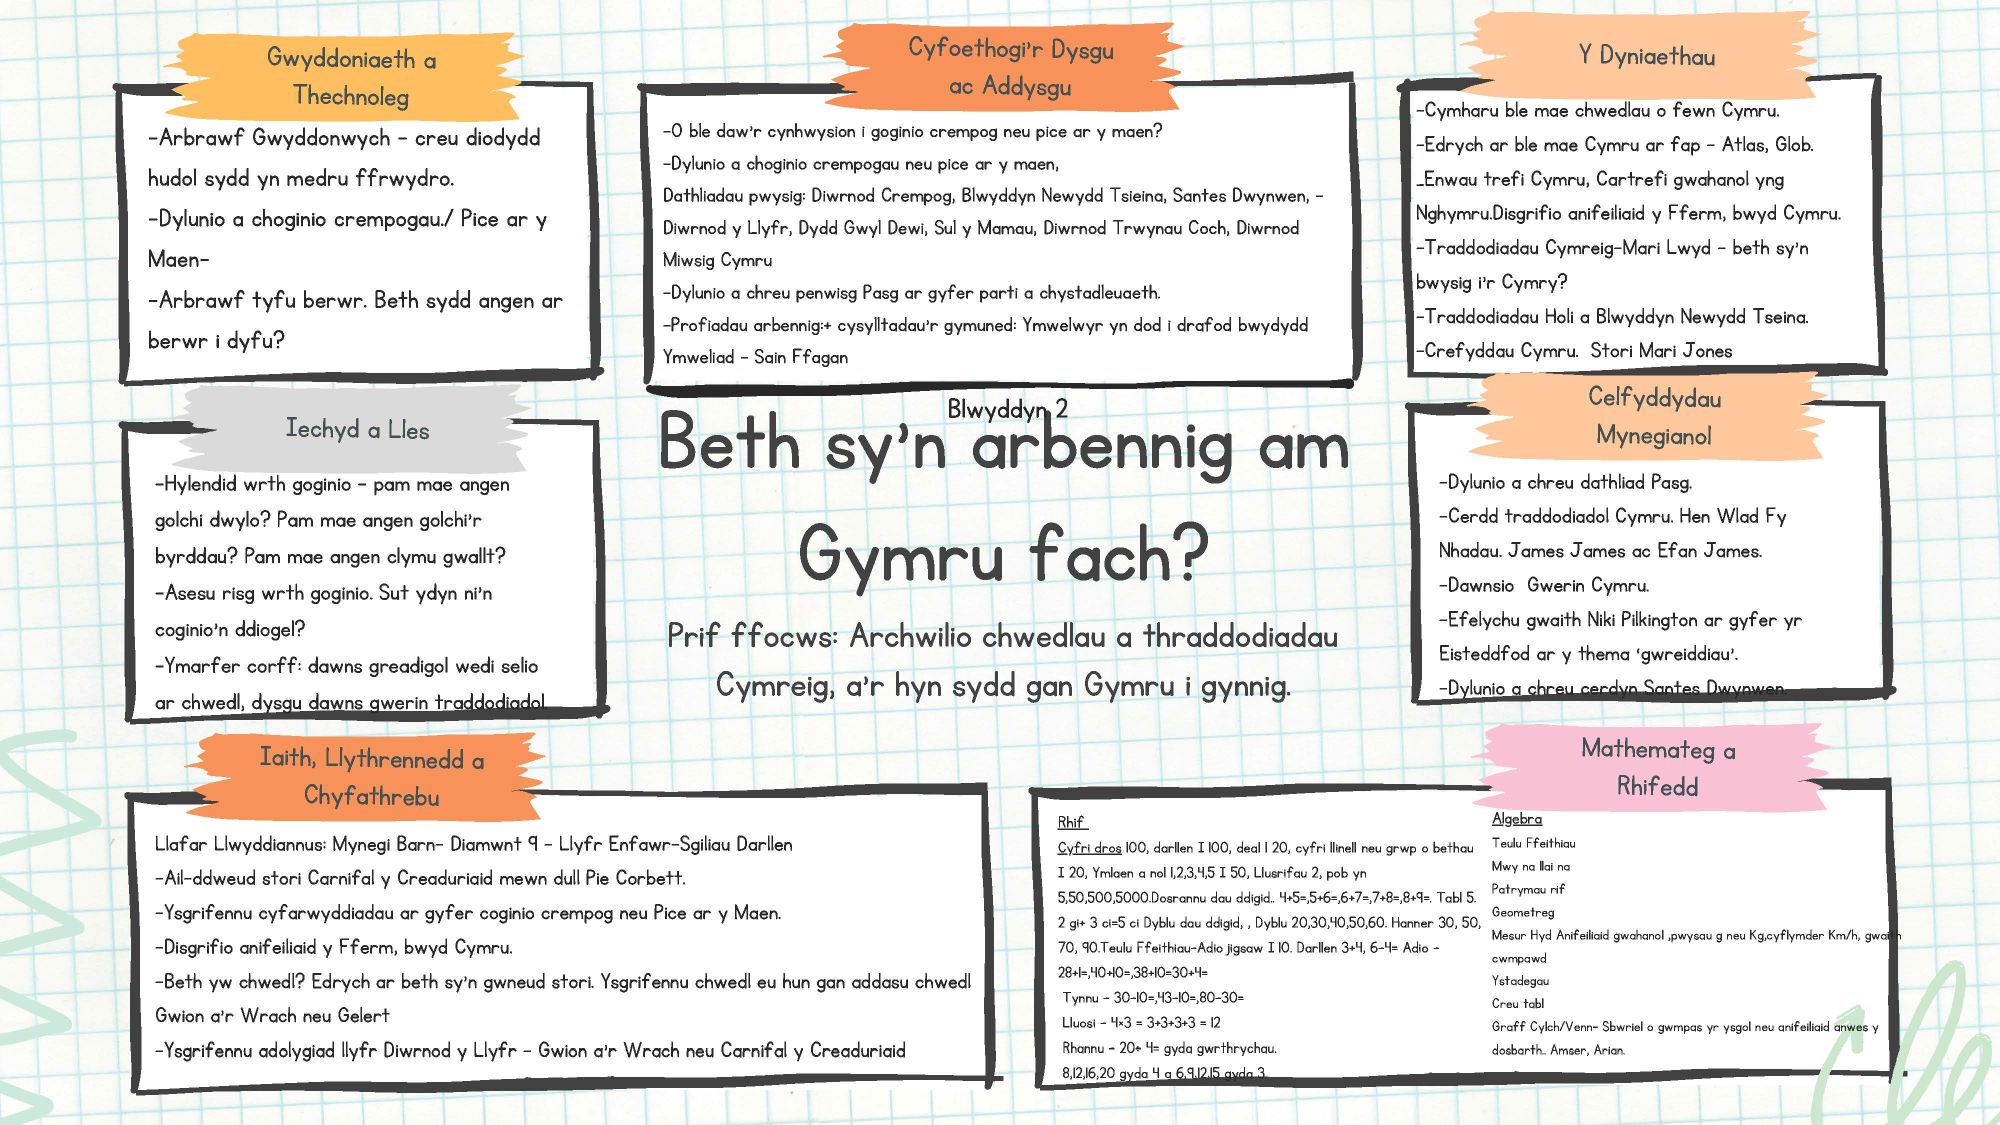 Gwyddoniaeth a
Thechnoleg
-Arbrawf Gwyddonwych - creu diodydd
hudol sydd yn medru ffrwydro.
-Dylunio a choginio crempogau./ Pice ar y
Maen-
-Arbrawf tyfu berwr. Beth sydd angen ar
berwr i dyfu?
Cyfoethogi'r Dysgu
ac Addysgu
-O ble daw'r cynhwysion i goginio crempog neu pice ar y maen?
-Dylunio a choginio crempogau neu pice ar y maen,
Dathliadau pwysig: Diwrnod Crempog, Blwyddyn Newydd Tsieina, Santes Dwynwen, -
Diwrnod y Llyfr, Dydd Gwyl Dewi, Sul y Mamau, Diwrnod Trwynau Coch, Diwrnod
Miwsig Cymru
-Dylunio a chreu penwisg Pasg ar gyfer parti a chystadleuaeth.
-Profiadau arbennig:+ cysylltadau'r gymuned: Ymwelwyr yn dod i drafod bwydydd
Ymweliad - Sain Ffagan
Y Dyniaethau
-Cymharu ble mae chwedlau o fewn Cymru.
-Edrych ar ble mae Cymru ar fap - Atlas, Glob.
_Enwau trefi Cymru, Cartrefi gwahanol yng
Nghymru.Disgrifio anifeiliaid y Fferm, bwyd Cymru.
-Traddodiadau Cymreig-Mari Lwyd - beth sy'n
bwysig i'r Cymry?
-Traddodiadau Holi a Blwyddyn Newydd Tseina.
-Crefyddau Cymru. Stori Mari Jones
Iechyd a Lles
-Hylendid wrth goginio - pam mae angen
golchi dwylo? Pam mae angen golchi'r
byrddau? Pam mae angen clymu gwallt?
-Asesu risg wrth goginio. Sut ydyn ni'n
coginio'n ddiogel?
-Ymarfer corff: dawns greadigol wedi selio
ar chwedl, dysgu dawns gwerin traddodiadol
Blwyddyn 2
Beth sy'n arbennig am
Gymru fach?
Prif ffocws: Archwilio chwedlau a thraddodiadau
Cymreig, a'r hyn sydd gan Gymru i gynnig.
Celfyddydau
Mynegianol
-Dylunio a chreu dathliad Pasg.
-Cerdd traddodiadol Cymru. Hen Wlad Fy
Nhadau. James James ac Efan James.
-Dawnsio Gwerin Cymru.
-Efelychu gwaith Niki Pilkington ar gyfer yr
Eisteddfod ar y thema 'gwreiddiau'.
-Dylunio a chreu cerdyn Santes Dwynwen.
Iaith, Llythrennedd a
Chyfathrebu
Llafar Llwyddiannus: Mynegi Barn- Diamwnt 9 - Llyfr Enfawr-Sgiliau Darllen
-Ail-ddweud stori Carnifal y Creaduriaid mewn dull Pie Corbett.
-Ysgrifennu cyfarwyddiadau ar gyfer coginio crempog neu Pice ar y Maen.
-Disgrifio anifeiliaid y Fferm, bwyd Cymru.
-Beth yw chwedl? Edrych ar beth sy'n gwneud stori. Ysgrifennu chwedl eu hun gan addasu chwedl
Gwion a'r Wrach neu Gelert
-Ysgrifennu adolygiad llyfr Diwrnod y Llyfr - Gwion a'r Wrach neu Carnifal y Creaduriaid
Mathemateg a
Rhifedd
Rhif
Cyfri dros 100, darllen I 100, deal I 20, cyfri llinell neu grwp o bethau
I 20, Ymlaen a nol 1,2,3,4,5 I 50, Llusrifau 2, pob yn
5,50,500,5000.Dosrannu dau ddigid.. 4+5=,5+6=,6+7=,7+8=,8+9=. Tabl 5.
2 gi+ 3 ci=5 ci Dyblu dau ddigid, , Dyblu 20,30,40,50,60. Hanner 30, 50,
70, 90.Teulu Ffeithiau-Adio jigsaw I 10. Darllen 3+4, 6-4= Adio -
28+1=,40+10=,38+10=30+4=
Tynnu - 30-10=,43-10=,80-30=
Lluosi - 4×3 = 3+3+3+3 = 12
Rhannu - 20÷ 4= gyda gwrthrychau.
8,12,16,20 gyda 4 a 6,9,12,15 gyda 3.
Algebra
Teulu Ffeithiau
Mwy na llai na
Patrymau rif
Geometreg
Mesur Hyd Anifeiliaid gwahanol ,pwysau g neu Kg,cyflymder Km/h, gwaith
cwmpawd
Ystadegau
Creu tabl
Graff Cylch/Venn- Sbwriel o gwmpas yr ysgol neu anifeiliaid anwes y
dosbarth.. Amser, Arian.